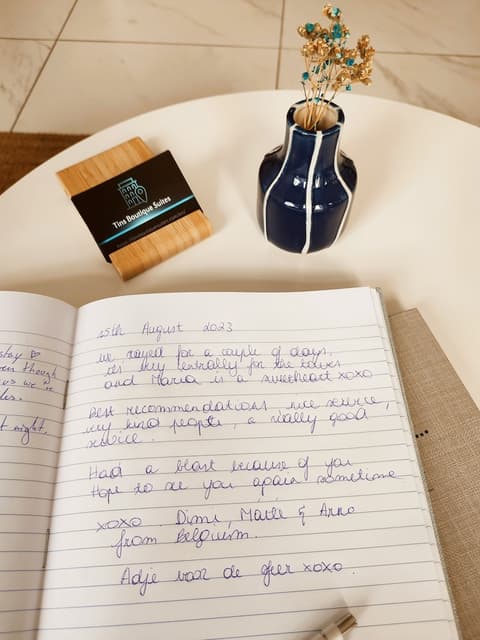 Tins Boutique Suites
stay
even though
as we're
night,
25th August 2023
We stayed for a couple of days,
it's very centrally for the towers
and Maria is a sweetheart xoxo
Best recommendations, nice service,
very kind people, a really good
service.
Had a blast because of you
Hope to see you again sometime
xoxo Dimi, Marte & Arno
from Belgium.
Adje voor de sfeer xoxo.